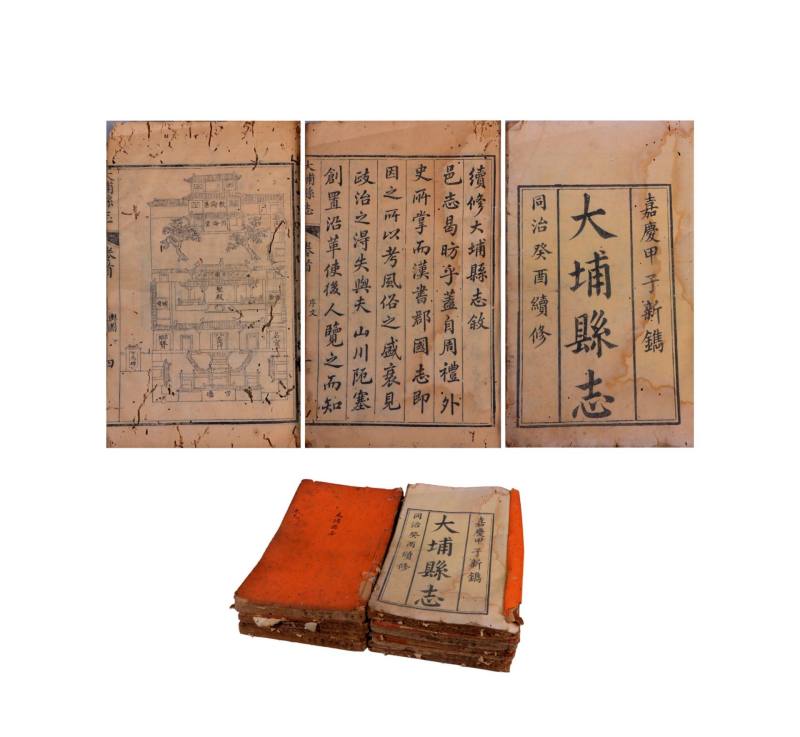 嘉慶甲子新鐫
大埔縣志
同治癸酉續修
續修大埔縣志敘
邑志曷昉乎蓋自周禮外
史所掌而漢書郡國志即
因之所以考風俗之盛衰見
政治之得失與夫山川阨塞
創置沿革使後人覽之而知
大埔縣志
卷首
序文
一
大埔縣志
卷首
輿圖
四
嘉慶甲子新鐫
大埔縣志
同治癸酉續修
大埔縣志